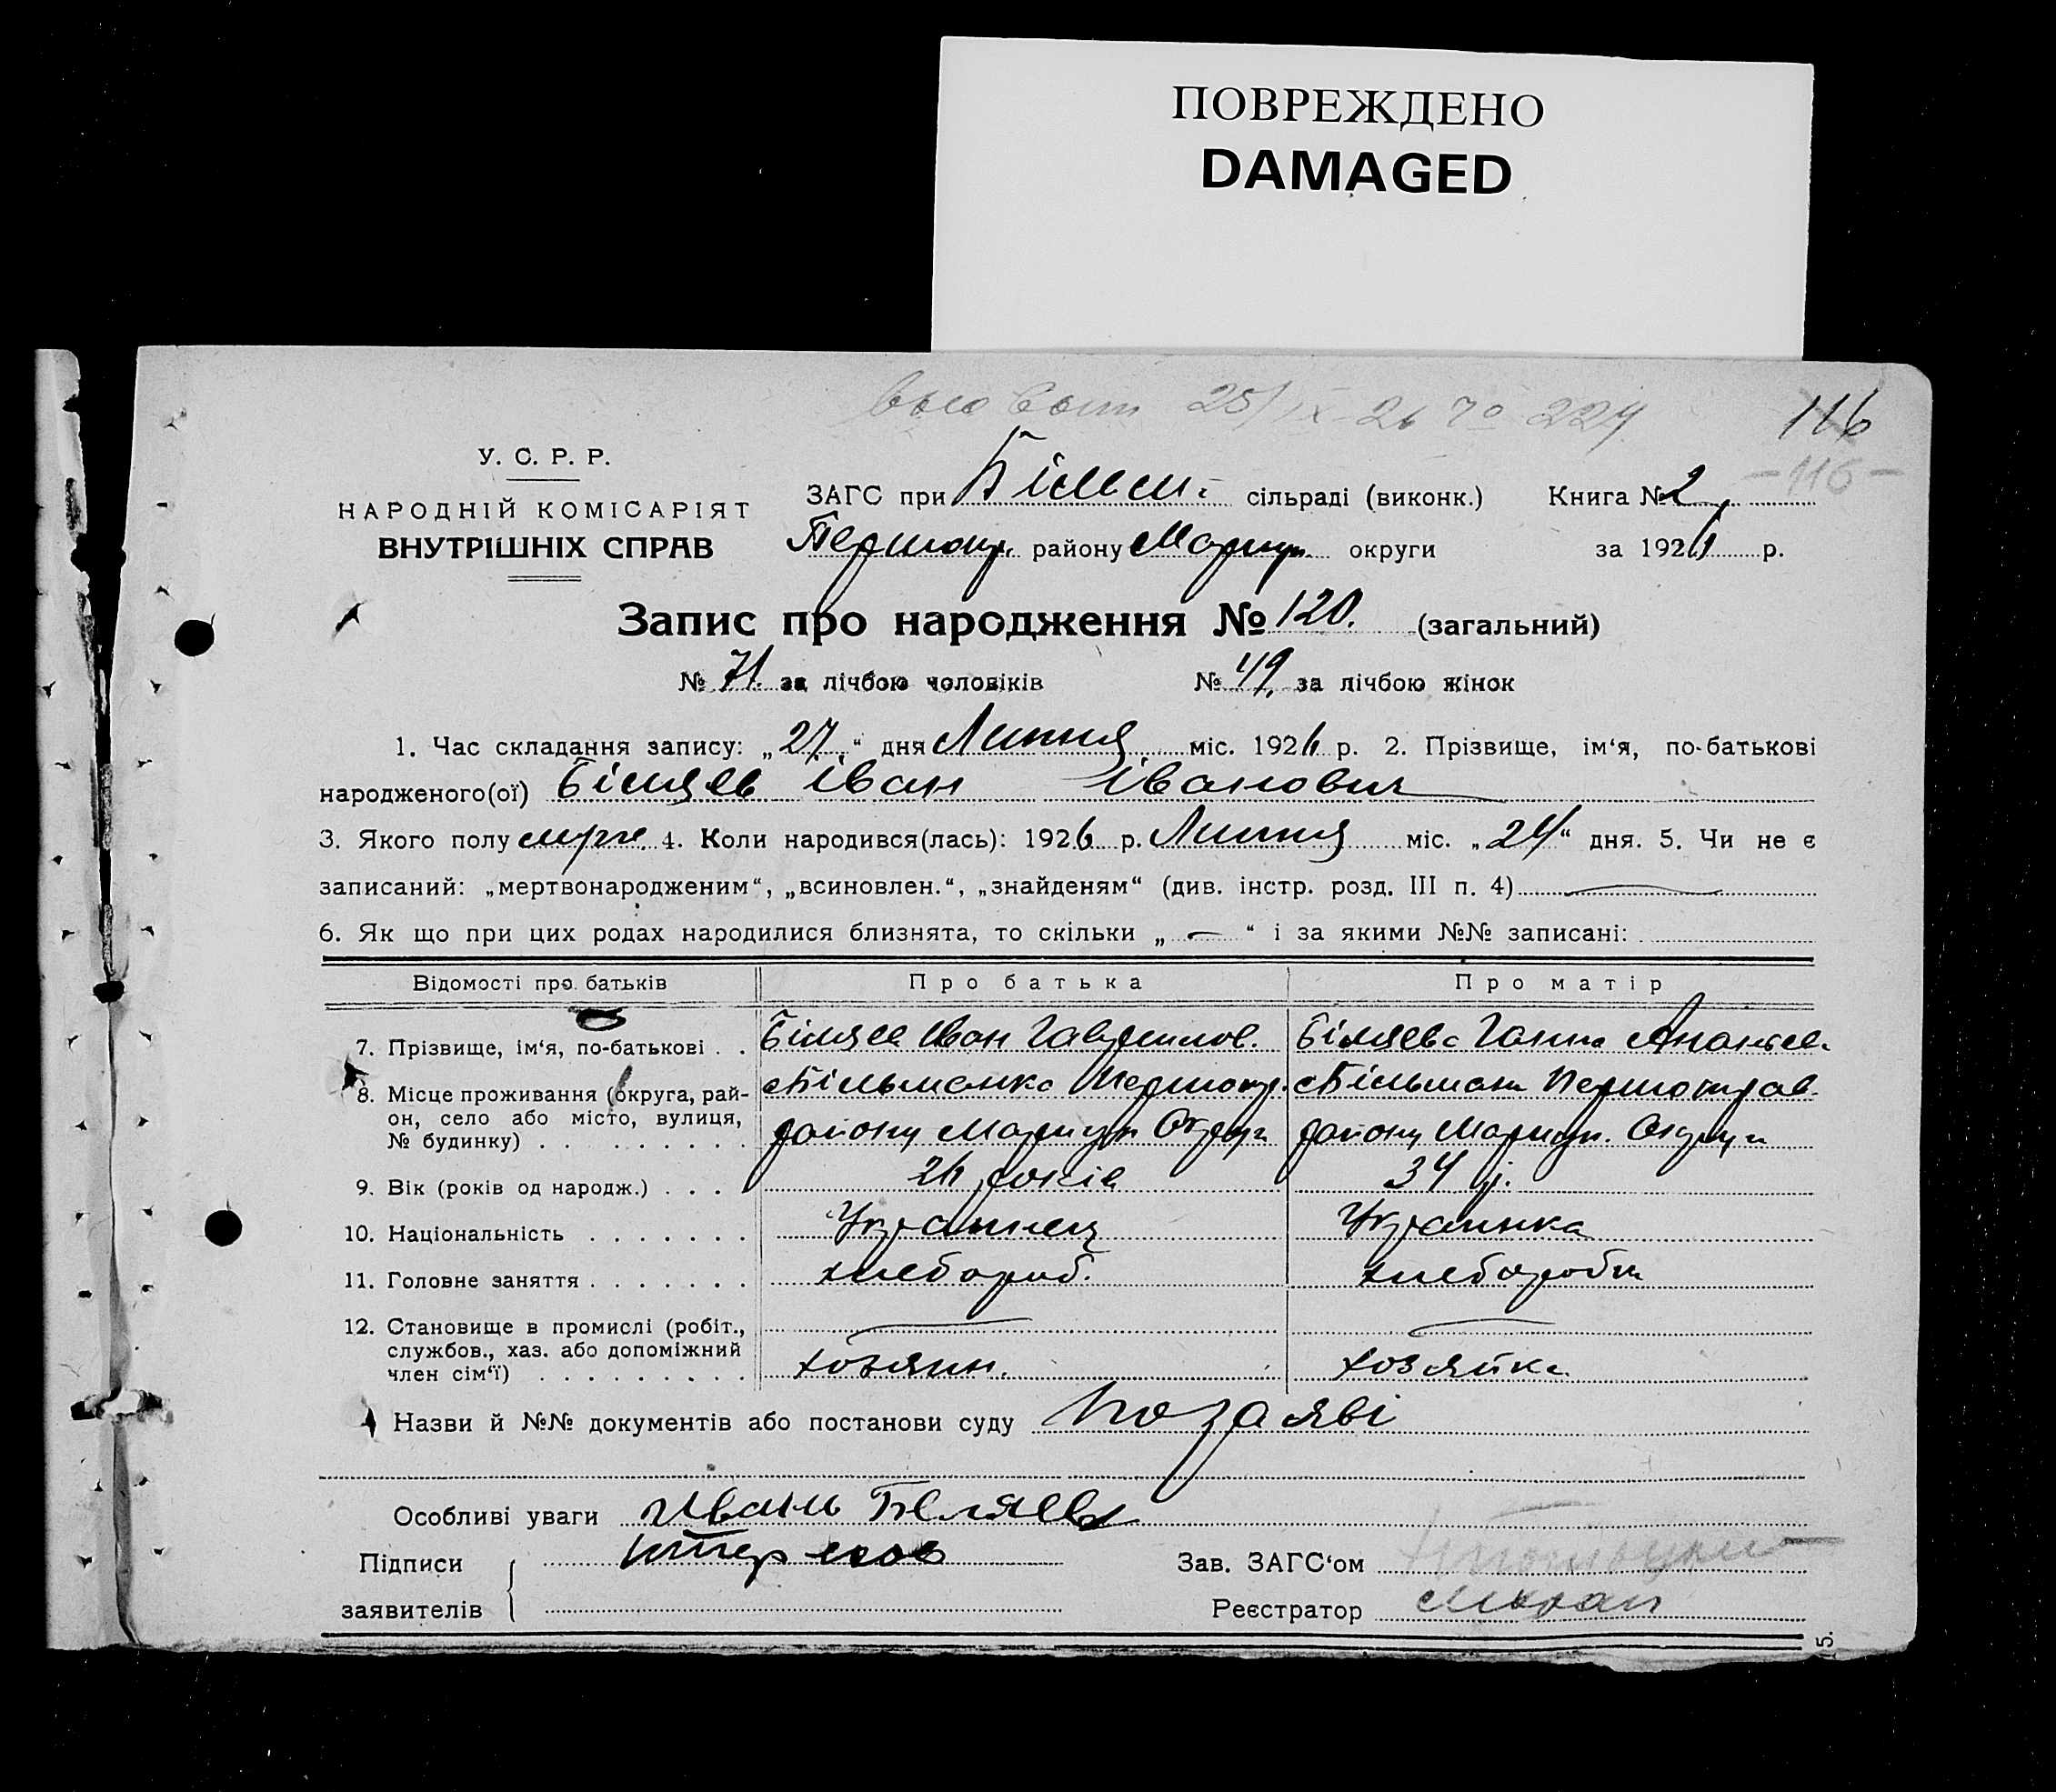 ПОВРЕЖДЕНО
DAMAGED
25/IX-26 № 224
116
-116-
У. С. Р. Р.
НАРОДНІЙ КОМІСАРІЯТ
ВНУТРІШНІХ СПРАВ
ЗАГС при Більм. сільраді (виконк.) Книга № 2
Першотр. району Маріуп. округи за 1926 р.
Запис про народження № 120. (загальний)
№ 71 за лічбою чоловіків № 49. за лічбою жінок
1. Час складання запису: „27“ дня Липня міс. 1926 р. 2. Прізвище, ім‘я, по-батькові
народженого(ої) Біляєв Іван Іванович
3. Якого полу муж. 4. Коли народився(лась): 1926 р. Липня міс. „24“ дня. 5. Чи не є
записаний: „мертвонародженим“, „всиновлен.“, „знайденям“ (див. інстр. розд. III п. 4) —
6. Як що при цих родах народилися близнята, то скільки „ — “ і за якими №№ записані:
Відомості про батьків Про батька Про матір
7. Прізвище, ім‘я, по-батькові . . Біляєв Іван Гаврилов. Біляєва Ганна Ананьев.
8. Місце проживання (округа, рай- с Більманка Першотр. с Більманк Першотрав.
он, село або місто, вулиця,
№ будинку) . . . . . . . . . району Маріуп Округи району Маріуп. Округи
9. Вік (років од народж.) . . . 26 років 34 р.
10. Національність . . . . . . . Українец Українка
11. Головне заняття . . . . . . . хлебороб. хлеборобка
12. Становище в промислі (робіт., — —
службов., хаз. або допоміжний
член сім‘ї) . . . . . . . . . хозяин. хозяйка
Назви й №№ документів або постанови суду По заяві
Особливі уваги Иванъ Беляевъ
Підписи
заявителів
Зав. ЗАГС‘ом
Реєстратор
5.